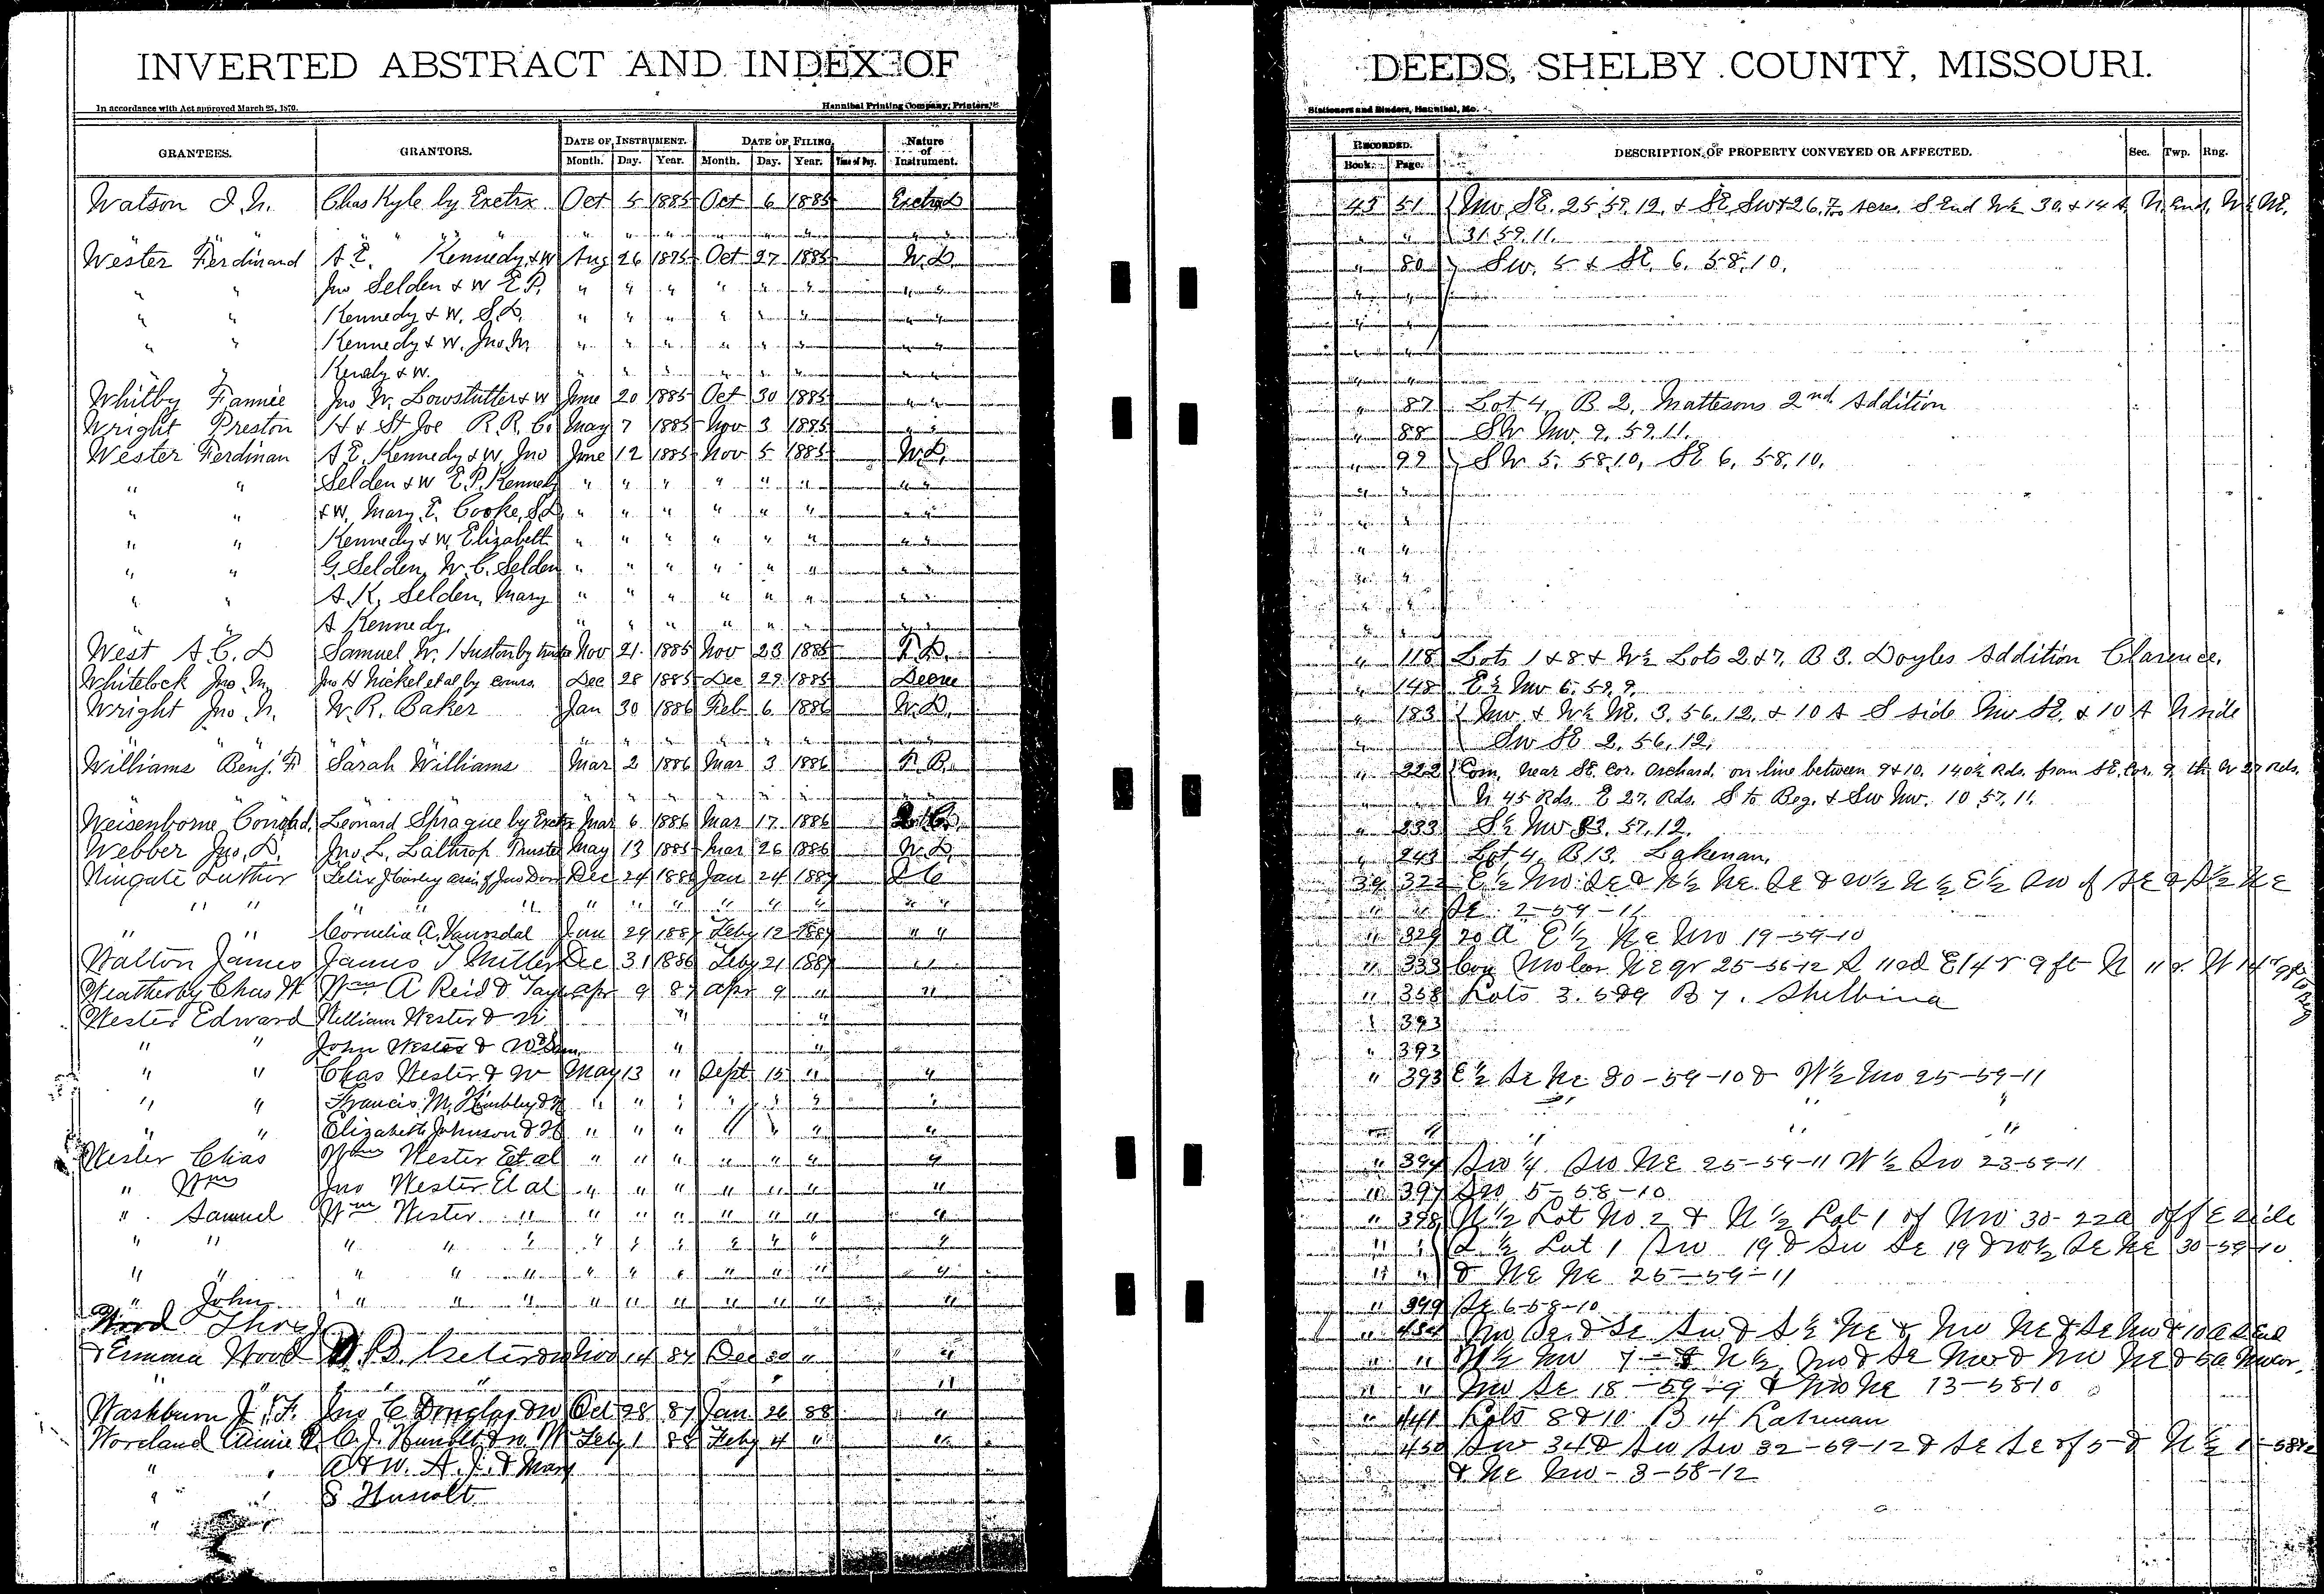 INVERTED ABSTRACT AND INDEX OF DEEDS, SHELBY COUNTY, MISSOURI.
In accordance with Act approved March 25, 1870. Hannibal Printing Company, Printers, Stationers and Binders, Hannibal, Mo.
GRANTEES. GRANTORS. DATE OF INSTRUMENT. DATE OF FILING. Nature of Instrument. RECORDED. DESCRIPTION OF PROPERTY CONVEYED OR AFFECTED. Sec. Twp. Rng.
Month. Day. Year. Month. Day. Year. Time of Day. Book. Page.
Watson J. N. Chas Kyle by Exetrx Oct 5 1885 Oct 6 1885 43 51 Nw, SE. 25.59.12. & SE Sw & 26
" " " " " " " " " " 31.59.11.
Wester Ferdinand A E. Kennedy & W Aug 26 1875 Oct 27 1885 W.D. " 80 Sw. 5 & SE. 6. 58.10.
" " Jno Selden & W E P. " " " " " " " "
" " Kennedy & W. S.D. " " " " " " " "
" " Kennedy & W. Jno. M " " " " " " " "
" " & W. " " " " " " " "
Whitby Fannie Jno W. Lowstutter & W June 20 1885 Oct 30 1885 " " " 87 Lot 4, B 2, Mattesons 2nd Addition
Wright Preston H & St Joe R.R. Co. May 7 1885 Nov 3 1885 " " " 88 Nw. 9. 59.11.
Wester Ferdinan A E. Kennedy & W, Jno June 12 1885 Nov 5 1885 W.D. " 92 SW 5. 58.10, SE 6. 58.10.
" " Selden & W E.P. Kennedy " " " " " " " "
" " & W, Mary E. Cooke, S.D. " " " " " " " "
" " Kennedy & W, Elizabeth " " " " " " " "
" " G. Selden, W. C. Selden " " " " " " " "
" " A. K. Selden, Mary " " " " " " " "
" " A Kennedy. " " " " " " " "
West A. C. D Samuel W. Huston by trustee Nov 21. 1885 Nov 23 1885 T.D. " 118 Lots 1 & 8 & W½ Lots 2 & 7, B 3. Doyles Addition Clarence.
Whitelock Jno. M. Jno H Nickel et al by coms. Dec 28 1885 Dec 29 1885 Decree " 148 E½ Nw 6. 59. 9.
Wright Jno. N. W. R. Baker Jan 30 1886 Feb 6 1886 W.D. " 183 Nw & W½ NE. 3. 56. 12. & 10 A S side Nw SE. & 10 A N side
" " " " " " " " " Sw SE 2. 56. 12.
Williams Benj. F Sarah Williams Mar 2 1886 Mar 3 1886 " 222 Com. Near SE. Cor. Orchard. on line between 9 & 10. 140½ Rds. from SE. Cor. 9 th W 27 Rds.
" " " " " " " " N 45 Rds. E 27. Rds. S to Beg. & Sw Nw. 10.57.11.
Weisenborne Conrad, Leonard Sprague by Exetr Mar 6 1886 Mar 17 1886 " 233 S½ Nw 33. 57. 12.
Webber Jno. D. Jno. L. Lathrop Trustee May 13 1885 Mar 26 1886 W.D. " 243 Lot 4, B 13. Lakenan.
Wingate Luther Dec 24 1886 Jan 24 1887 39 322 E½ Nw Se & N½ Ne Se & W½ N½ E½ Sw of Se & S½ Ne
" " " " " " " " " " " " " Se 2-59-11
" " Cornelia A. Vanosdal Jan 29 1887 Feby 12 1887 " " " 329 20 A E½ Ne Nw 19-59-10
Walton James James T Miller Dec 31 1886 Feby 21 1887 " " " 333 Nw Cor Ne qr 25-56-12
Weatherby Chas H Wm A Reid & Apr 9 87 Apr 9 " " " 358 Lots 3. 6 & 9 B 7. Shelbina
Wester Edward William Wester & W " " " 393
" " John Wester & " " " 393
" " Chas Wester & W May 13 " Sept 15 " " " 393 E½ Se Ne 30-59-10 & W½ Nw 25-59-11
" " Francis M. & " " " " " " " " " "
" " Elizabeth Johnson & H " " " " " " " " " "
Wester Chas Wm Wester Et al " " " " " " " " 394 Sw ¼ Sw Ne 25-59-11 W½ Sw 23-59-11
" Wm Jno Wester Et al " " " " " " " " 397 Sw 5-58-10
" Samuel Wm Wester " " " " " " " " " 398 N½ Lot No 2 & N½ Lot 1 of Nw 30- 22a off E side
" " " " " " " " " " " " " " S.½ Lot 1 Sw 19 & Sw Se 19 & W½ Se Ne 30-59-10
" " " " " " " " " " " " " " & Ne Ne 25-59-11
" John " " " " " " " " " " " 399 Se 6-58-10
Wood " 434 Nw Se. & Se Sw & S½ Ne & Nw Ne & Se Nw & 10 a
& Emma Wood Nov 14 87 Dec 30 " " " " W½ Nw 7 - & N½ Nw & Se Nw & Nw Ne & 5a Nw cor
" " " " " " " Nw Se 18-59-9 & Nw Ne 13-58-10
Washburn J. F. Jno C Douglas & W Oct 28 87 Jan 26 88 " " 441 Lots 8 & 10 B 14 Lakenan
Woreland Annie C. J. & W Feby 1 88 Feby 4 " " 450 Sw 34 & Sw Sw 32-59-12 & Se Se of 5 & N½
" " & W. A. J. & Mary & Ne Nw - 3-58-12
" " S
"